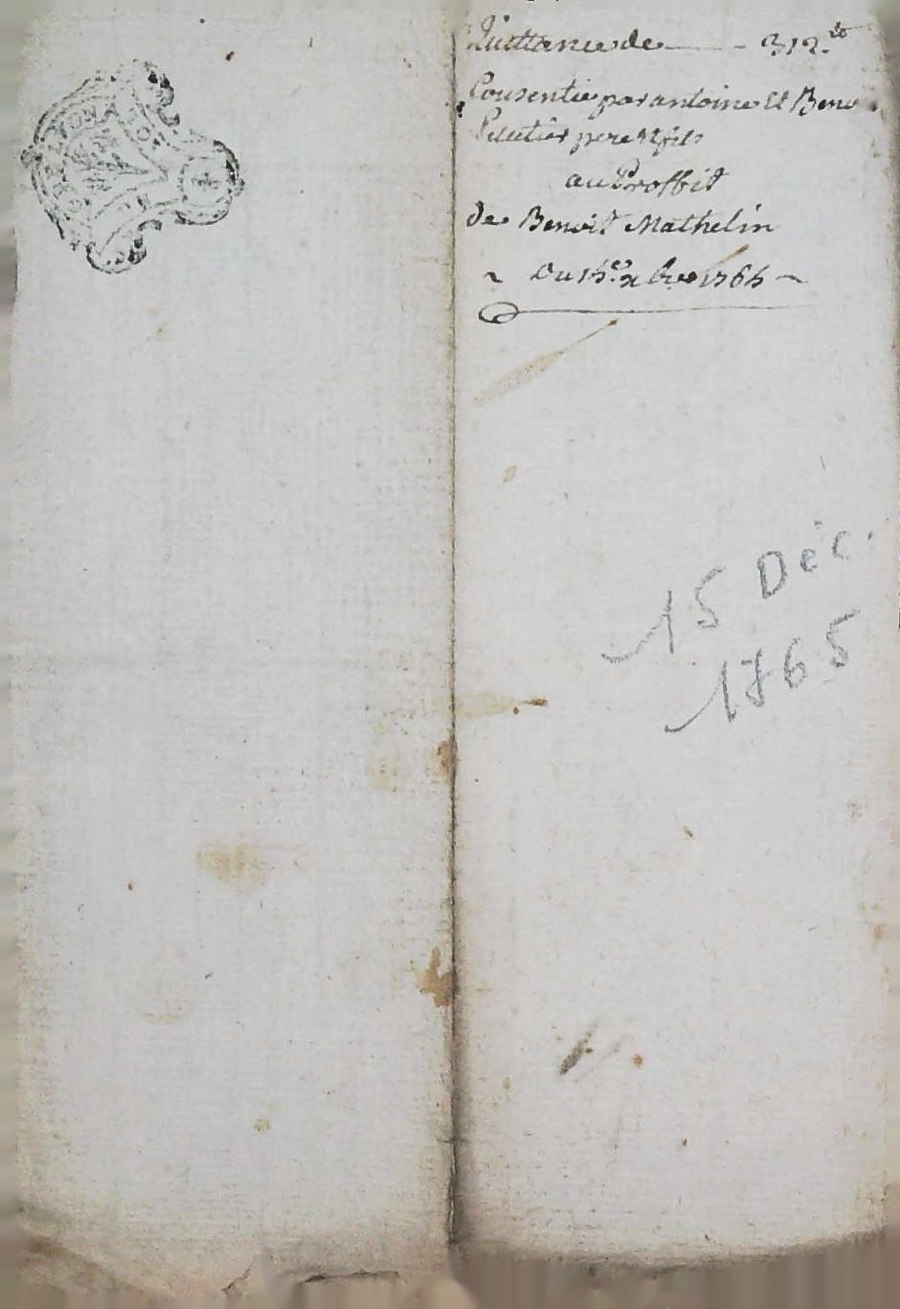 GNE LYON
Quittance de 312 tt
Consentie par antoine Et Beno
Pelletier pere & fils
au Proffit
de Benoit Mathelin
Du 15e xbre 1765
15 Déc.
1765